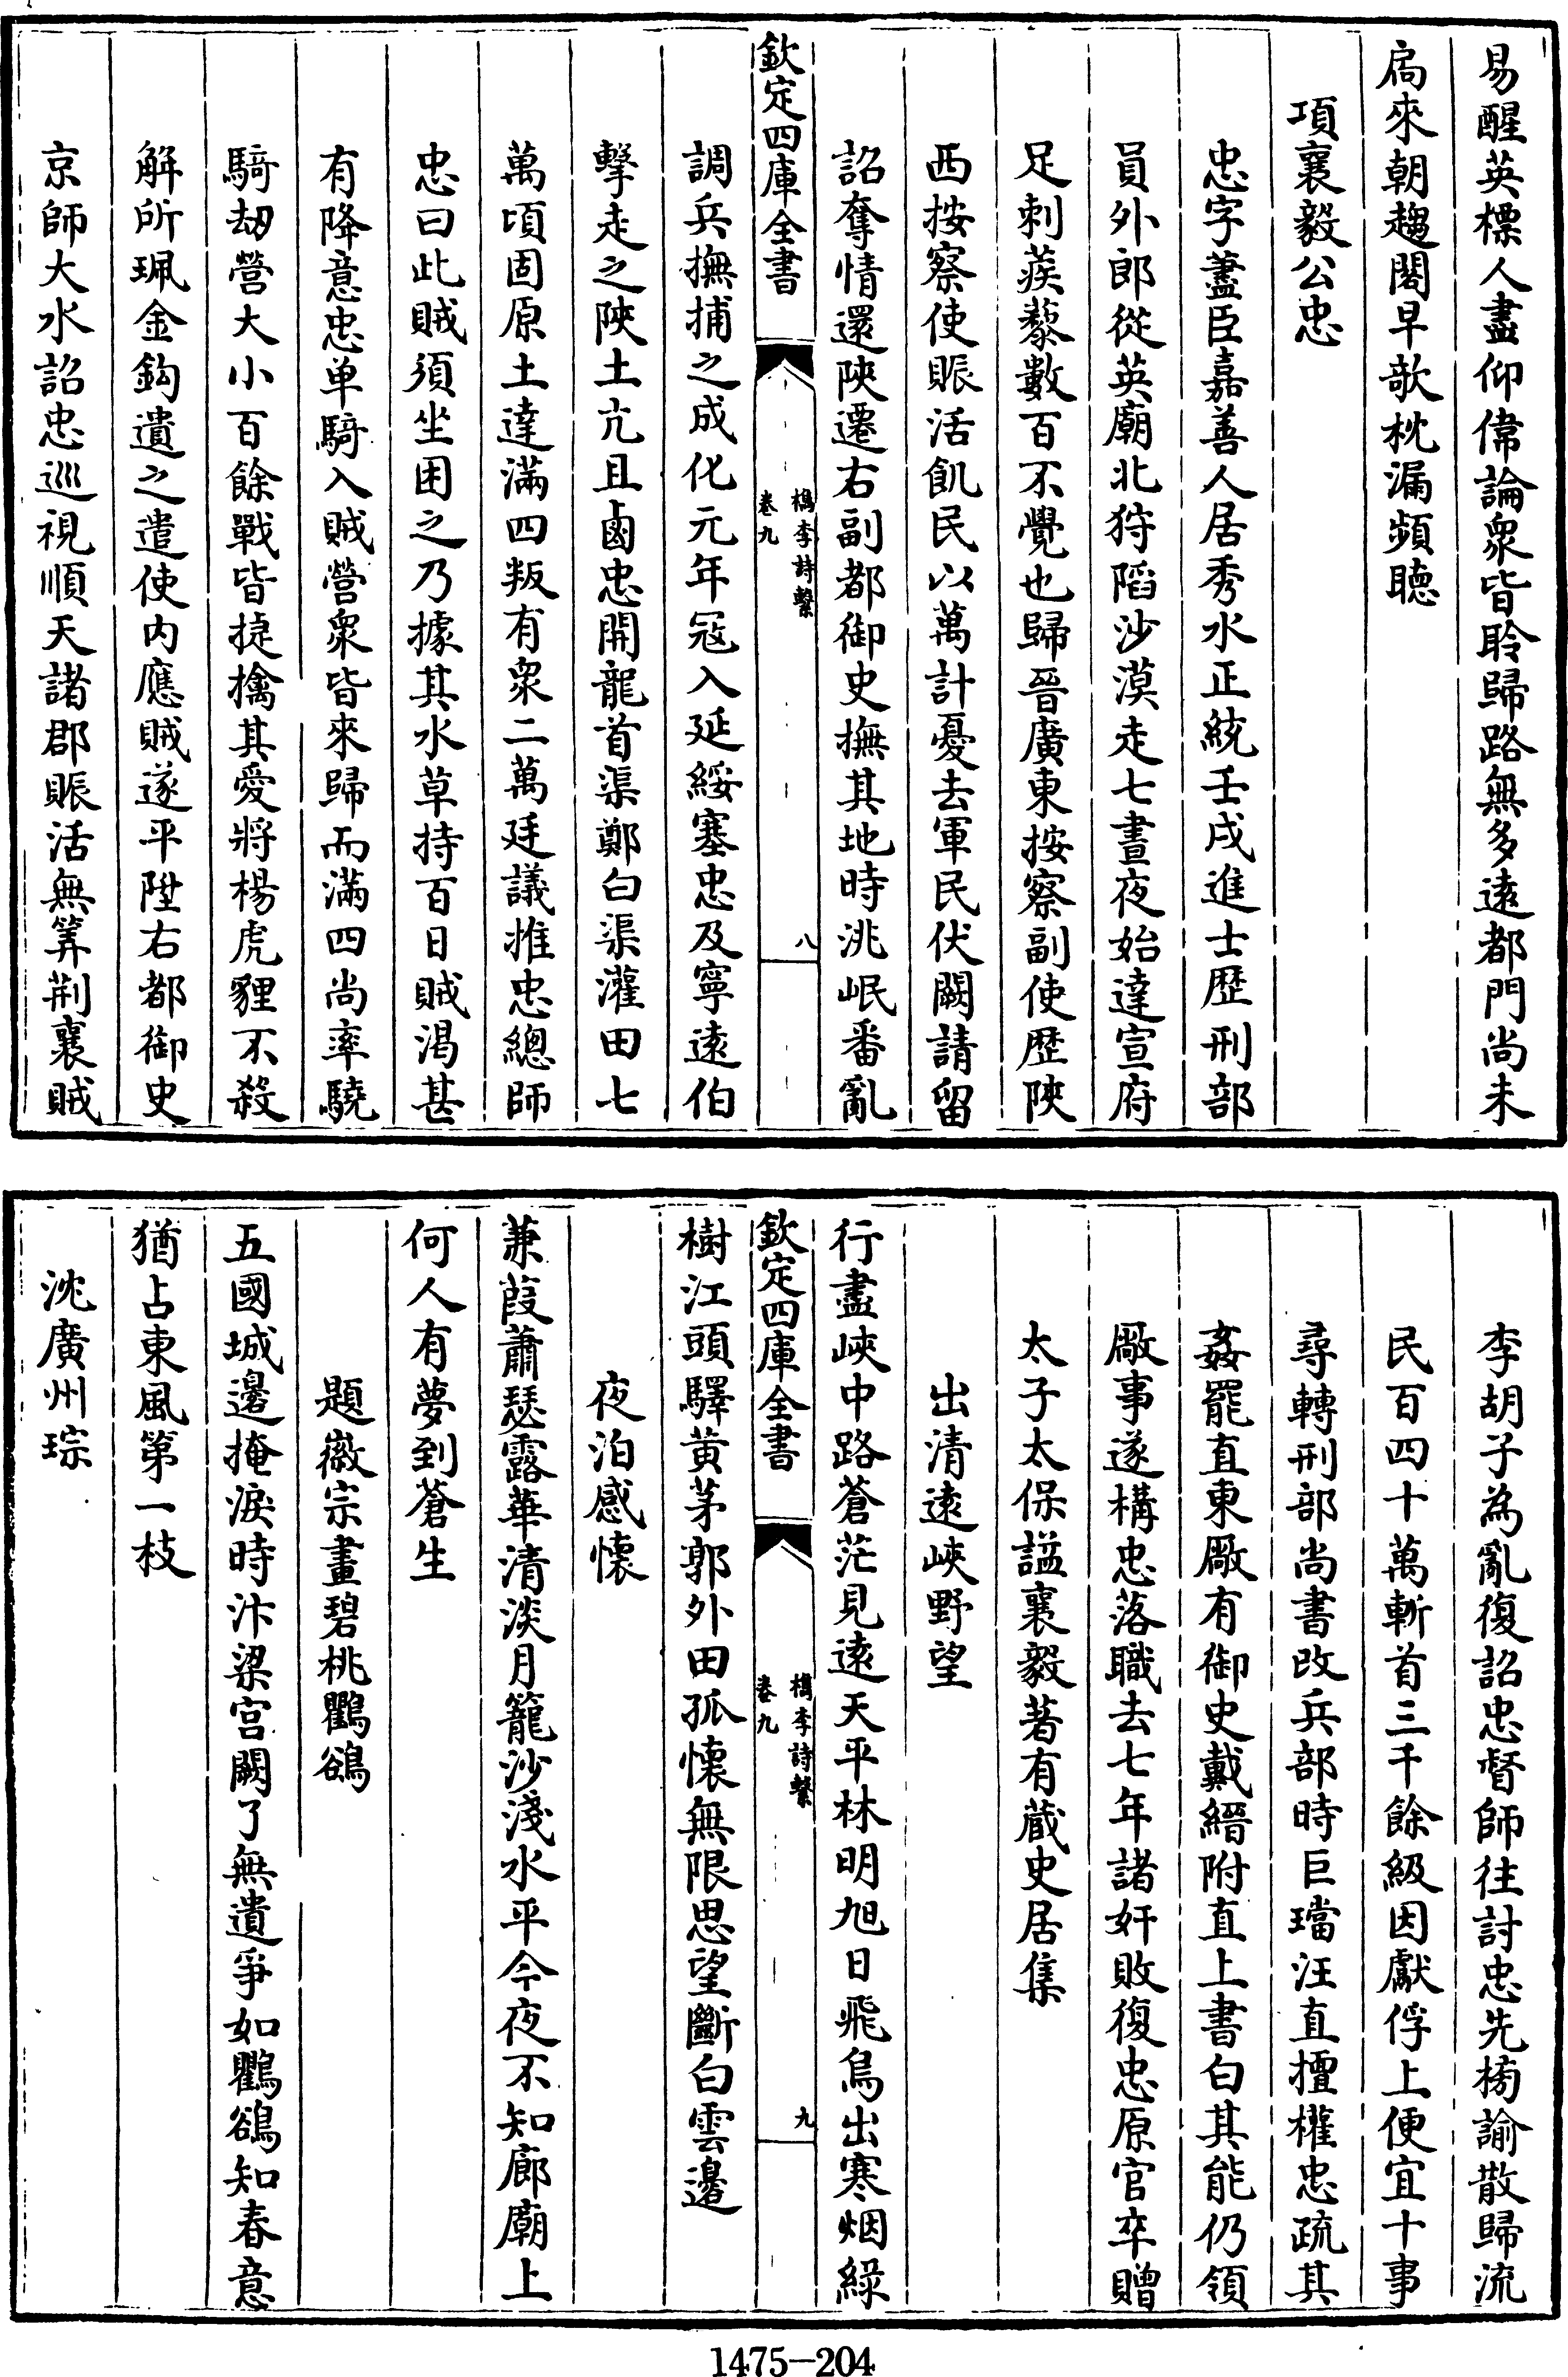 易醒英標人盡仰偉論衆皆聆歸路無多遠都門尚未
扃來朝趨閣早欹枕漏頻聽
項襄毅公忠
忠字藎臣嘉善人居秀水正統壬戌進士歴刑部
員外郎從英廟北狩陷沙漠走七晝夜始達宣府
足刺蒺藜數百不覺也歸晉廣東按察副使歴陜
西按察使賑活飢民以萬計憂去軍民伏闕請留
詔奪情還陜遷右副都御史撫其地時洮岷番亂
欽定四庫全書
檇李詩繫
卷九
八
調兵撫捕之成化元年冦入延綏塞忠及寧遠伯
擊走之陜土亢且鹵忠開龍首渠鄭白渠灌田七
萬頃固原土達滿四叛有衆二萬廷議推忠總師
忠曰此賊須坐困之乃據其水草持百日賊渴甚
有降意忠单騎入賊營衆皆來歸而滿四尚率驍
騎刼營大小百餘戰皆捷擒其愛將楊虎貍不殺
解所珮金鈎遺之遣使内應賊遂平陞右都御史
京師大水詔忠巡視順天諸郡賑活無筭荆襄賊
李胡子為亂復詔忠督師往討忠先榜諭散歸流
民百四十萬斬首三千餘級因獻俘上便宜十事
尋轉刑部尚書改兵部時巨璫汪直擅權忠疏其
姦罷直東厰有御史戴縉附直上書白其能仍領
厰事遂構忠落職去七年諸奸敗復忠原官卒贈
太子太保諡襄毅著有蔵史居集
出清遠峽野望
行盡峽中路蒼茫見遠天平林明旭日飛鳥出寒烟緑
欽定四庫全書
檇李詩繫
卷九
九
樹江頭驛黄茅郭外田孤懷無限思望斷白雲邊
夜泊感懷
蒹葭蕭瑟露華清淡月籠沙淺水平今夜不知廊廟上
何人有夢到蒼生
題徽宗畫碧桃鸜鵒
五國城邊掩淚時汴梁宫闕了無遺爭如鸜鵒知春意
猶占東風第一枝
沈廣州琮
1475—204